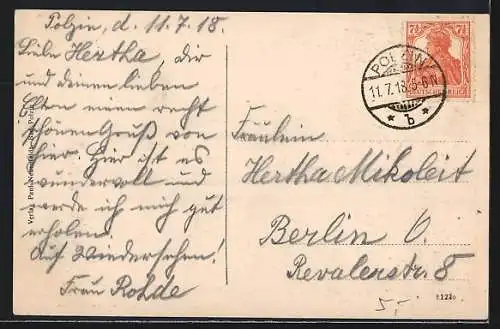 Polzin, d. 11.7.18.
Liebe Hertha, dir
und deinen lieben
Eltern einen recht
schönen Gruß von
hier. Hier ist es
wundervoll und
werde ich mich gut
erholen.
Auf Wiedersehen!
Frau Rohde
Verlag Paul Bad Polzin
7½ 7½
DEUTSCHES REICH
POLZIN
11.7.18.5-6N
* b *
Fräulein
Hertha Mikoleit
Berlin O.
Revalerstr. 8
5,-